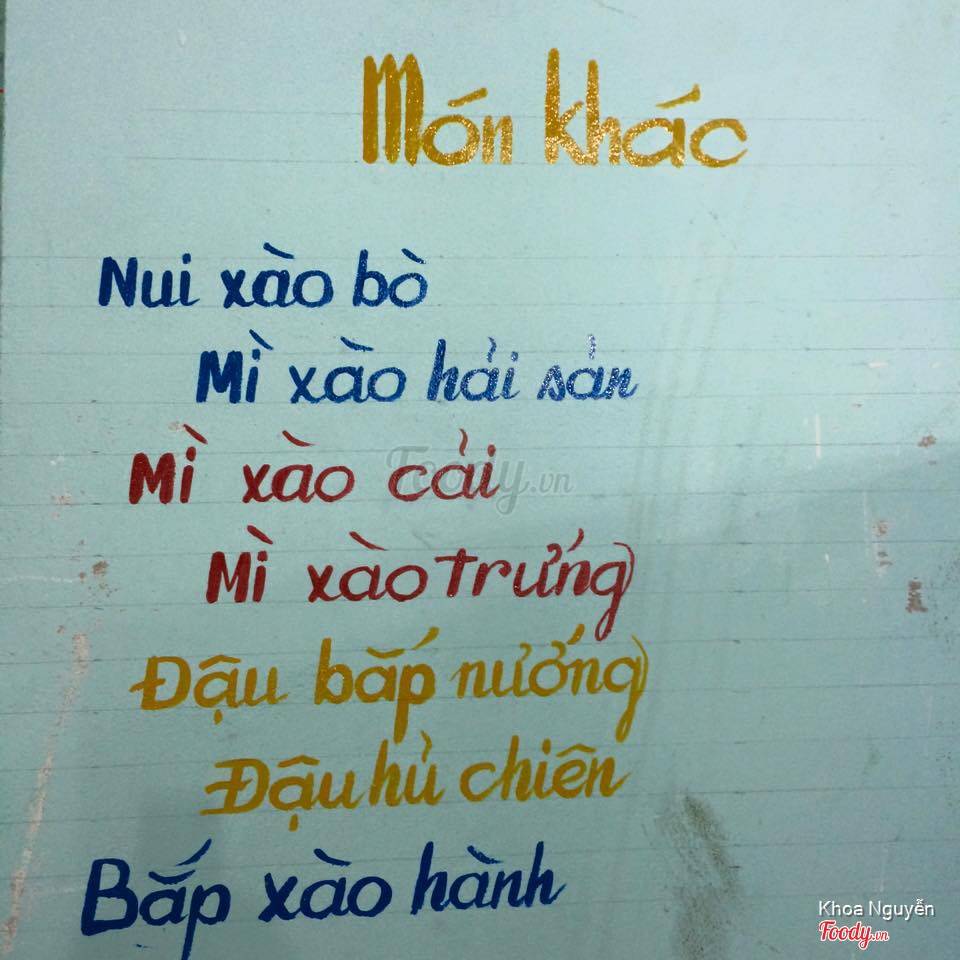 Món khác
Nui xào bò
Mì xào hải sản
Mì xào cải
Foody.vn
Mì xào trứng
Đậu bắp nướng
Đậu hủ chiên
Bắp xào hành
Khoa Nguyễn
Foody.vn